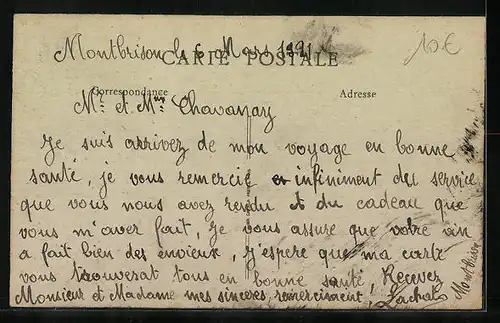 Montbrison le 6 Mars 1921
10€
CARTE POSTALE
Correspondance
Adresse
Mr et Mme Chavanay
Je suis arrivez de mon voyage en bonne
santé, je vous remercie infiniment du service
que vous nous avez rendu et du cadeau que
vous m'aver fait, Je vous assure que votre vin
a fait bien des envieux, j'espere que ma carte
vous trouverat tous en bonne santé, Recevez
Monsieur et Madame mes sinceres remerciment, Lachat
Montbrison